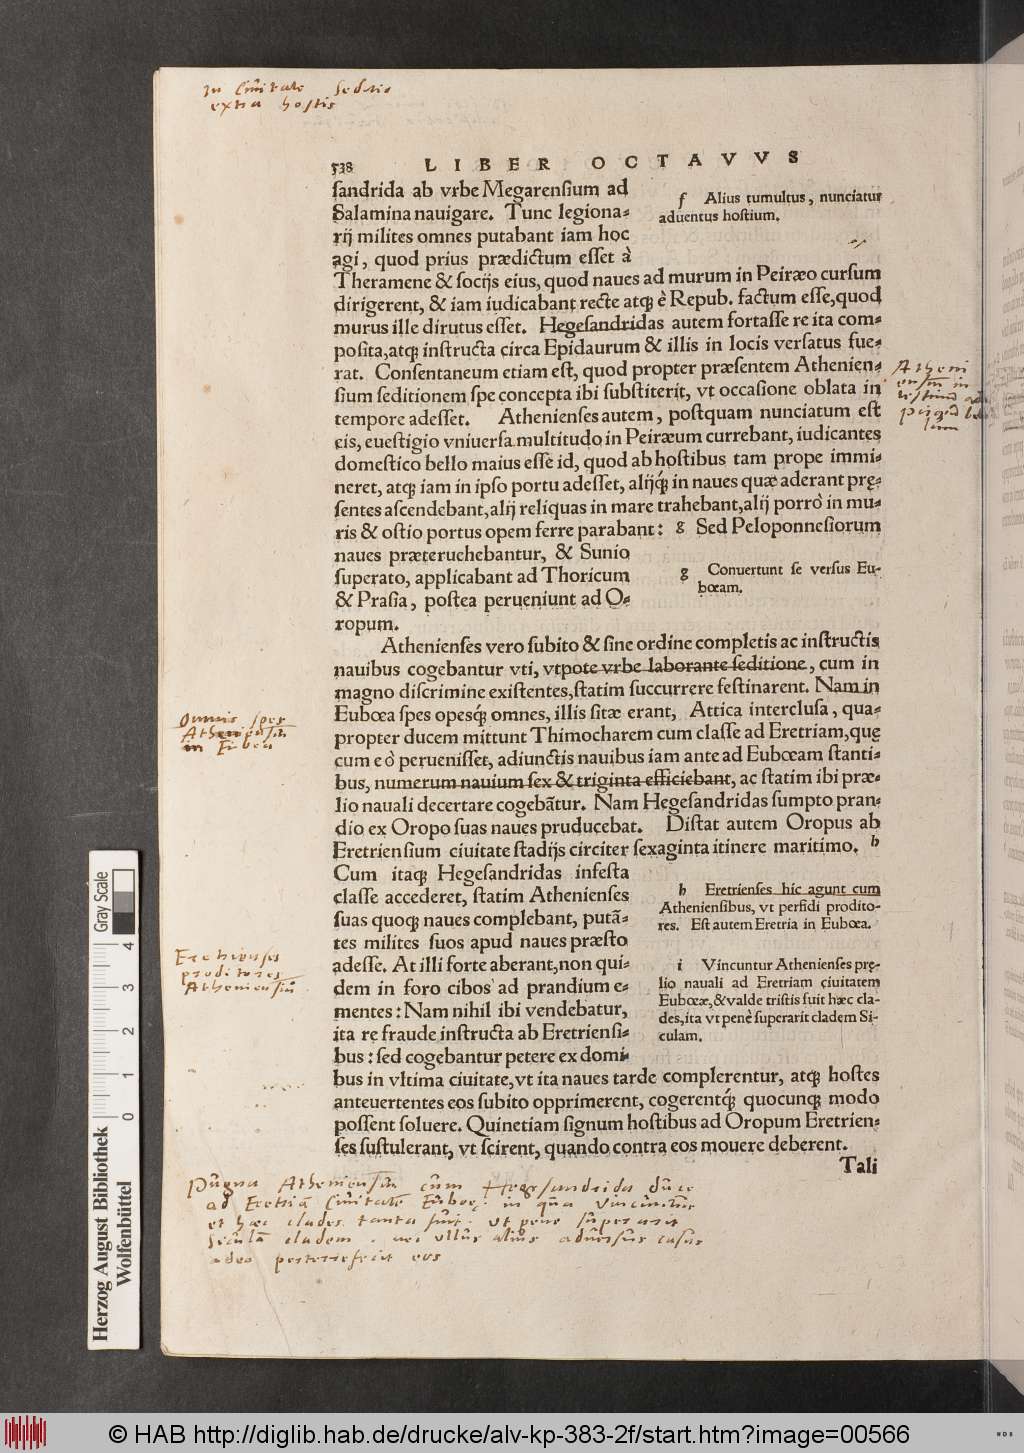 In Ciuitate Seditio
extra hostis
538 LIBER OCTAVVS
sandrida ab vrbe Megarensium ad
Salamina nauigare. Tunc legiona-
rij milites omnes putabant iam hoc
agi, quod prius prædictum esset à
f Alius tumultus, nunciatur
aduentus hostium.
Theramene & socijs eius, quod naues ad murum in Peiræo cursum
dirigerent, & iam iudicabant recte atq; è Repub. factum esse, quod
murus ille dirutus esset. Hegesandridas autem fortasse re ita com-
posita, atq; instructa circa Epidaurum & illis in locis versatus fue-
rat. Consentaneum etiam est, quod propter præsentem Athenien-
sium seditionem spe concepta ibi substiterit, vt occasione oblata in
tempore adesset. Athenienses autem, postquam nunciatum est
eis, euestigio vniuersa multitudo in Peiræum currebant, iudicantes
domestico bello maius esse id, quod ab hostibus tam prope immi-
neret, atq; iam in ipso portu adesset, alijq́; in naues quæ aderant prę-
sentes ascendebant, alij reliquas in mare trahebant, alij porrò in mu-
ris & ostio portus opem ferre parabant: g Sed Peloponnesiorum
Atheni
ensiũ in
naues præteruehebantur, & Sunio
superato, applicabant ad Thoricum
& Prasia, postea perueniunt ad O-
ropum.
g Conuertunt se versus Eu-
bœam.
Athenienses vero subito & sine ordine completis ac instructis
nauibus cogebantur vti, vtpote vrbe laborante seditione, cum in
magno discrimine existentes, statim succurrere festinarent. Nam in
Eubœa spes opesq́; omnes, illis sitæ erant, Attica interclusa, qua-
propter ducem mittunt Thimocharem cum classe ad Eretriam, quę
cum eò peruenisset, adiunctis nauibus iam ante ad Eubœam stanti-
bus, numerum nauium sex & triginta efficiebant, ac statim ibi præ-
lio nauali decertare cogebãtur. Nam Hegesandridas sumpto pran-
dio ex Oropo suas naues pruducebat. Distat autem Oropus ab
Eretriensium ciuitate stadijs circiter sexaginta itinere maritimo. h
Omnis spes
Atheniensiũ
in Eubea
Cum itaq; Hegesandridas infesta
classe accederet, statim Athenienses
suas quoq; naues complebant, putã-
tes milites suos apud naues præsto
adesse. At illi forte aberant, non qui-
dem in foro cibos ad prandium e-
mentes: Nam nihil ibi vendebatur,
ita re fraude instructa ab Eretriensi-
bus: sed cogebantur petere ex domi-
h Eretrienses hîc agunt cum
Atheniensibus, vt perfidi prodito-
res. Est autem Eretria in Eubœa.
i Vincuntur Athenienses prę-
lio nauali ad Eretriam ciuitatem
Eubœæ, & valde tristis fuit hæc cla-
des, ita vt penè superarit cladem Si-
culam.
Eretrienses
proditores
Atheniensiũ
bus in vltima ciuitate, vt ita naues tarde complerentur, atq; hostes
anteuertentes eos subito opprimerent, cogerentq́; quocunq; modo
possent soluere. Quinetiam signum hostibus ad Oropum Eretrien-
ses sustulerant, vt scirent, quando contra eos mouere deberent.
Tali
Pugna Atheniensiũ cum Hegesandrida duce
ad Eretriã Ciuitatẽ Euboę: in qua Vincuntur
et hæc clades tanta fuit. ut pene superarit
Siculã cladem. nec ullus alius aduersus casus
adeo perterrefecit eos
Gray Scale
0 1 2 3 4
Herzog August Bibliothek
Wolfenbüttel
© HAB http://diglib.hab.de/drucke/alv-kp-383-2f/start.htm?image=00566